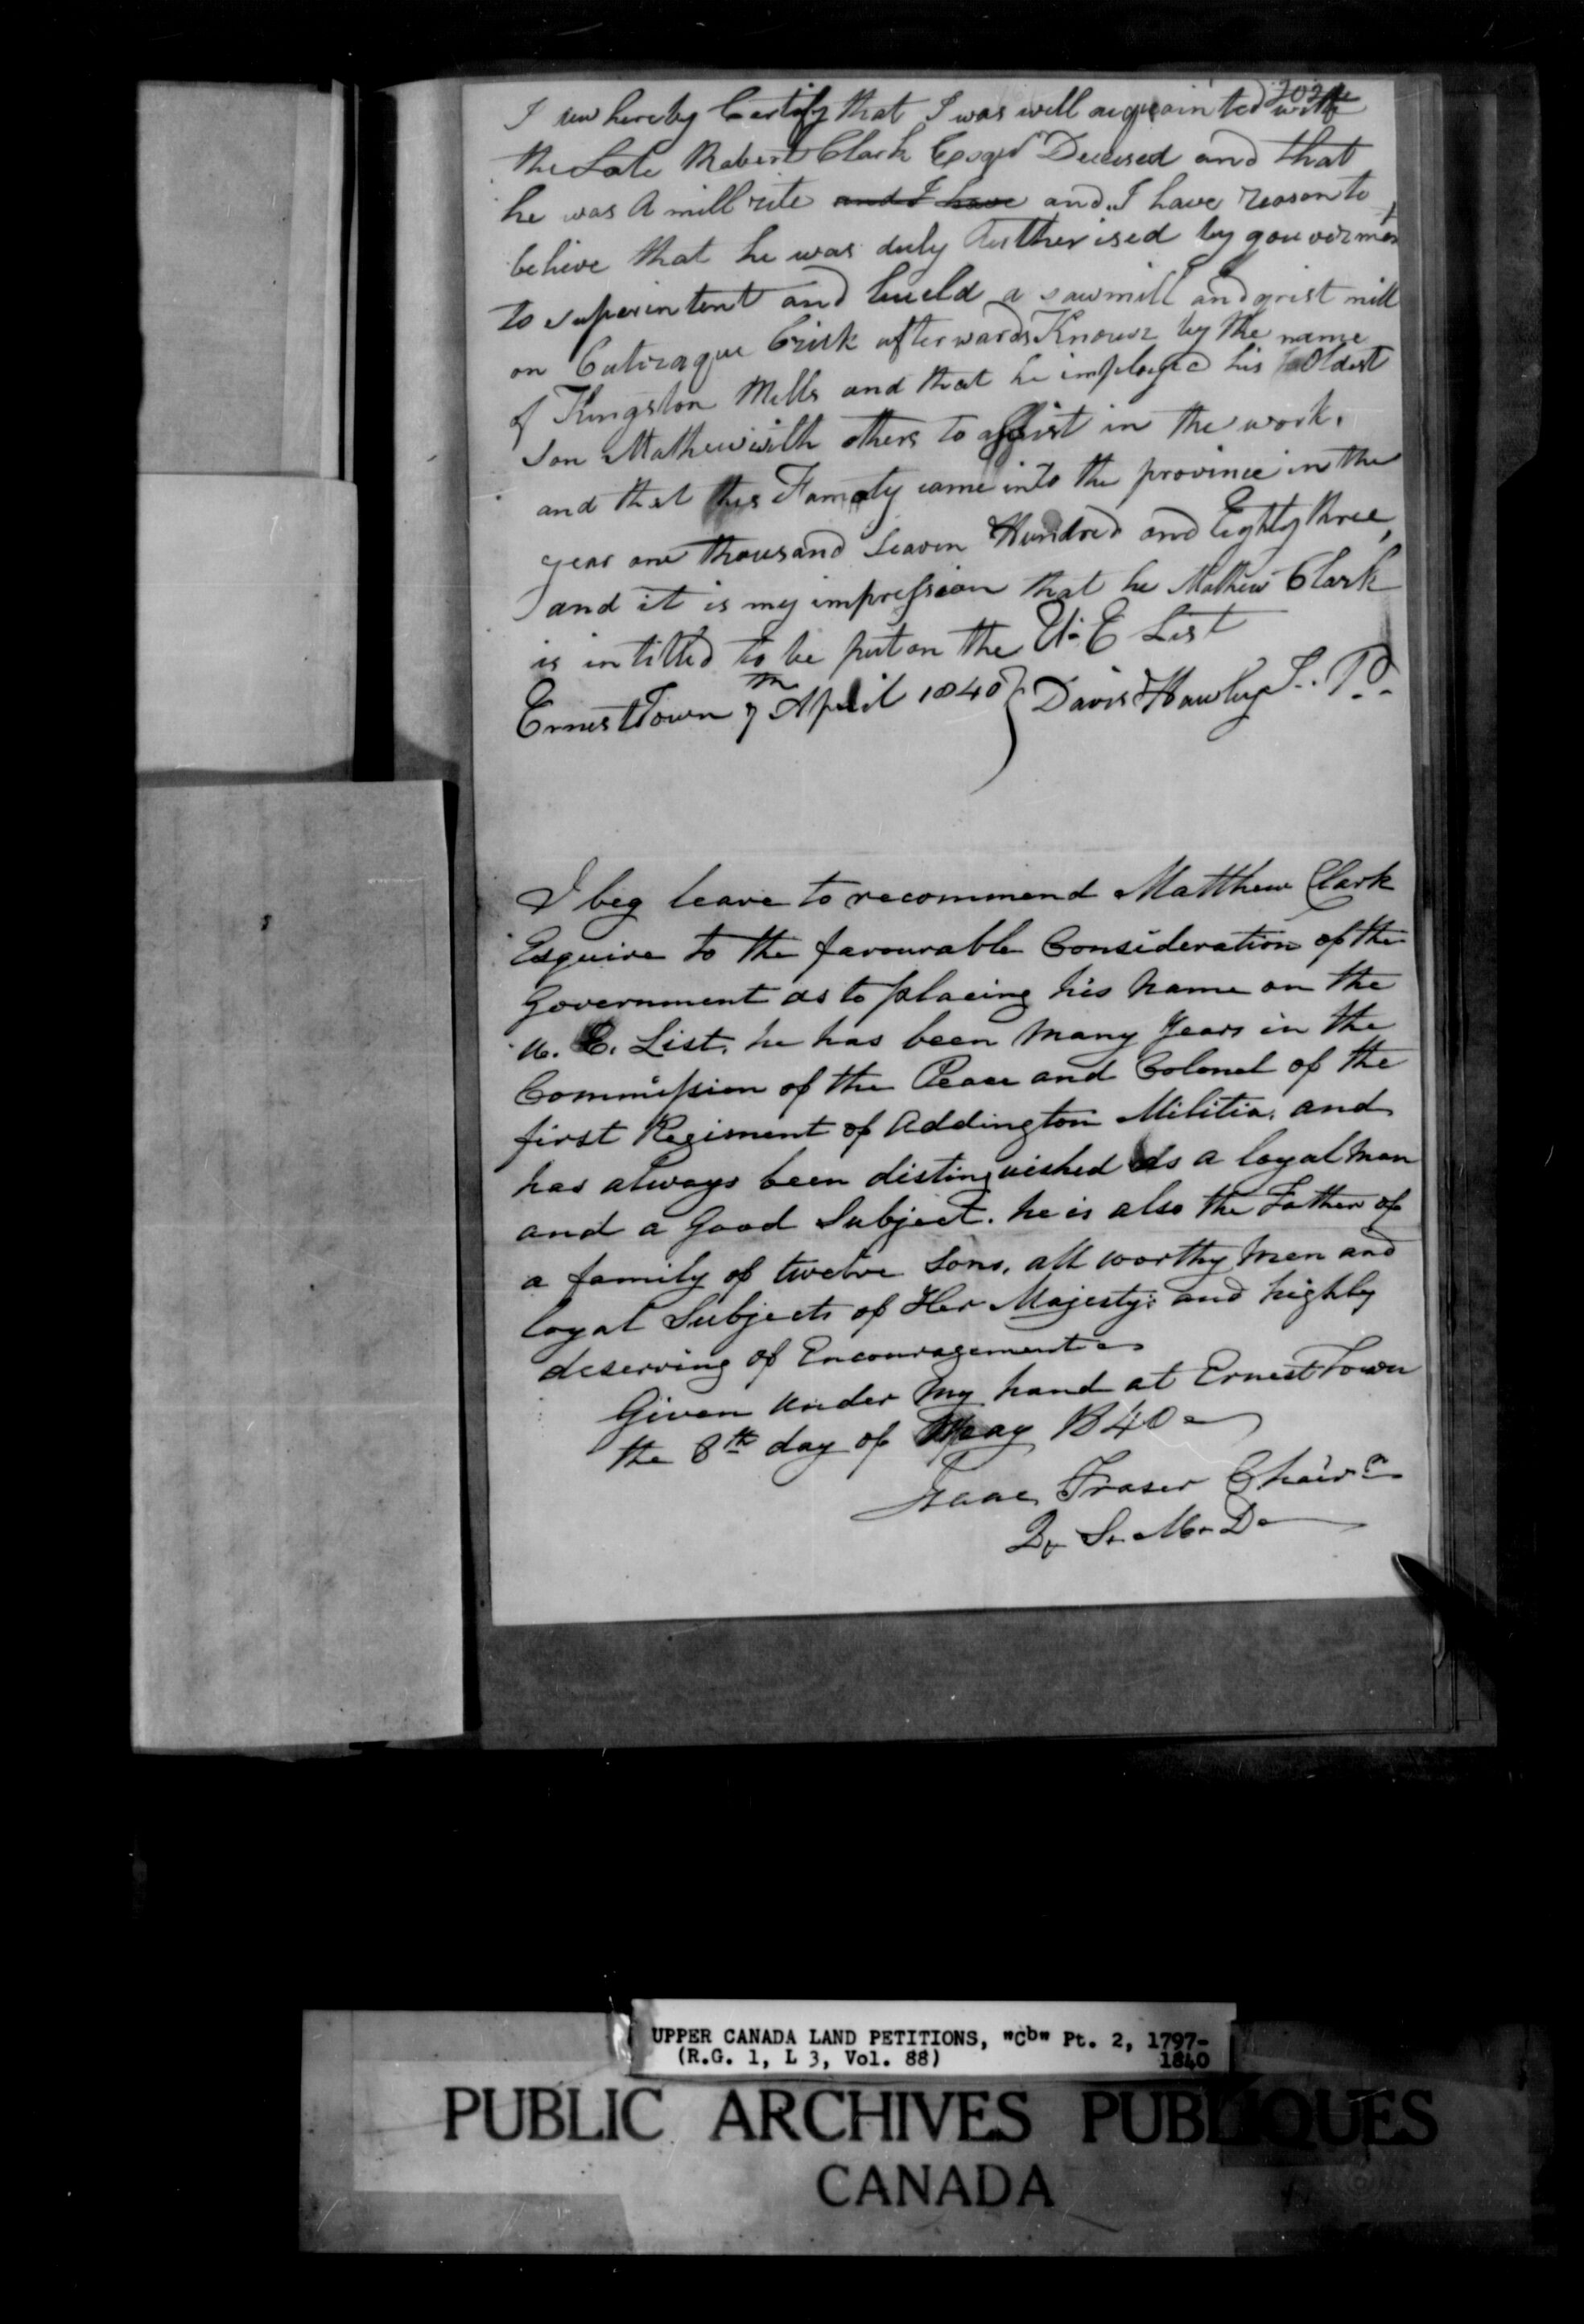 I do hereby Certify that I was well acquainted with
the Late Robert Clark Esqr Deceised and that
he was A mill rite and I have and I have reason to
beheve that he was duly Autherised by gouverment
to superintent and bueld a sawmill and grist mill
on Cataraque Crick afterwards Known by the name
of Kingston Mills and that he imployed his Oldest
Son Mathew with others to assist in the work.
and that this Famaly came into the province in the
year one thousand Seaven Hundred and Eighty three,
and it is my impression that he Mathew Clark
is intitled to be put on the U. E List
Ernest Town 7th April 1840 } Davis Hawley J. P.
I beg leave to recommend Matthew Clark
Esquire to the favourable Consideration of the
Government as to placing his Name on the
U. E. List, he has been Many Years in the
Commission of the Peace and Colonel of the
first Regiment of Addington Militia, and
has always been distinguished as a loyal Man
and a Good Subject. he is also the Father of
a family of twelve Sons, all worthy Men and
loyal Subjects of Her Majesty; and highly
deserving of Encouragement
Given Under My hand at Ernest Town
the 8th day of May 1840
Isaac Fraser Chairn
Q. S. M. D
UPPER CANADA LAND PETITIONS, "Cb" Pt. 2, 1797-
(R.G. 1, L 3, Vol. 88) 1840
PUBLIC ARCHIVES PUBLIQUES
CANADA